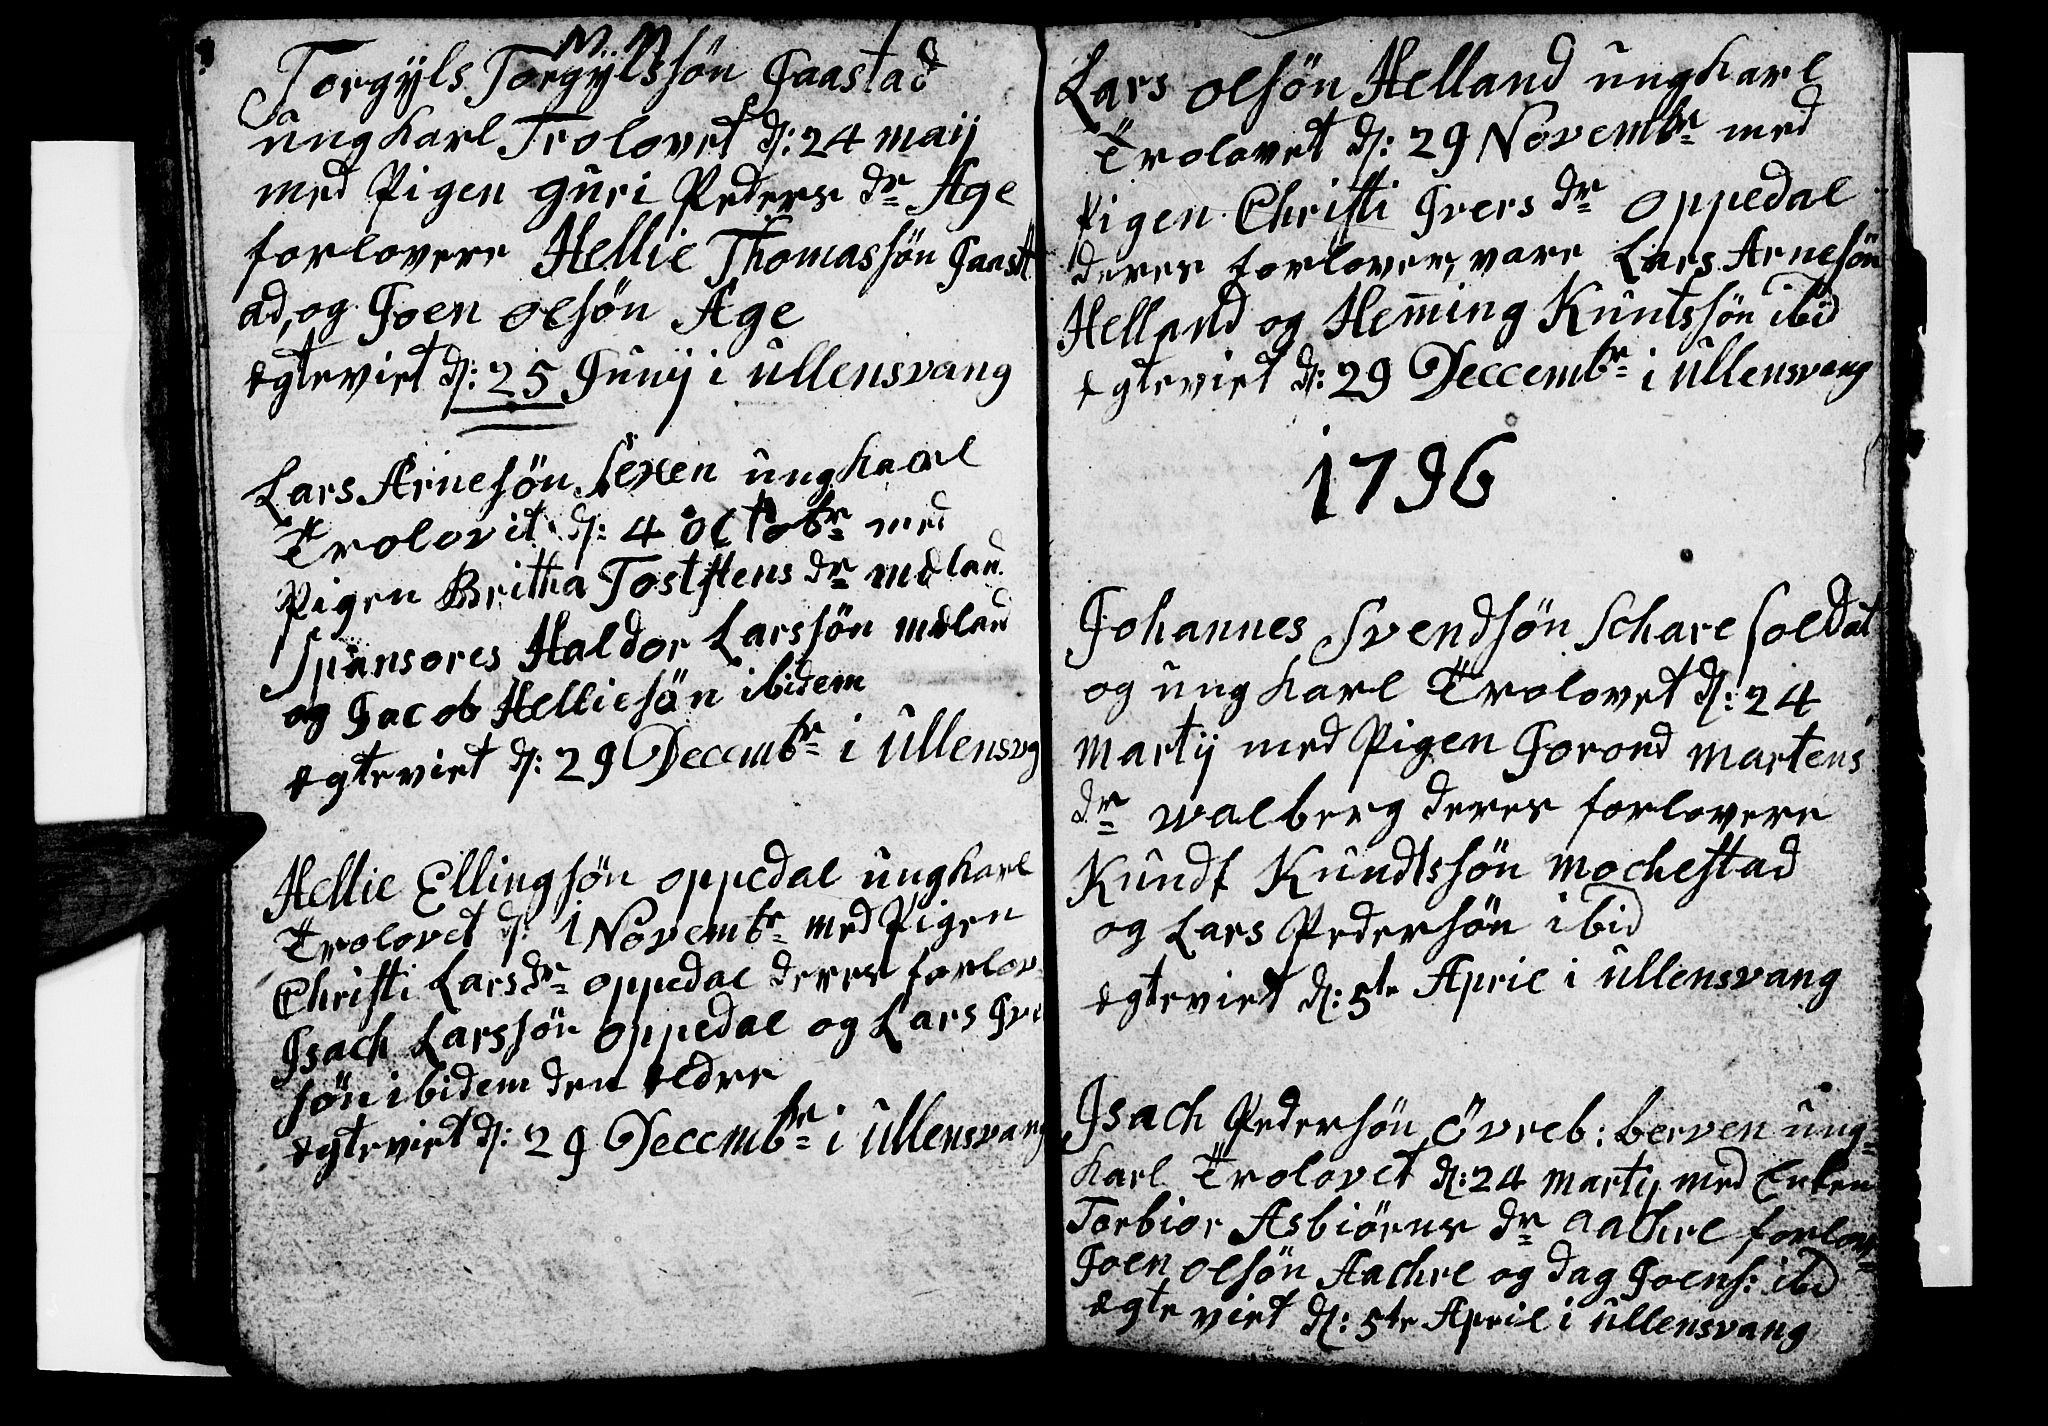 Torgÿls Torgÿlssön Jaastad
ung karl Trolovet d: 24 maij
med Pigen guri Peders dr Age
forlovere Hellie Thomassön Jaast
ad, og Joen olsön Age
egteviet d: 25 Junij i ullensvang
Lars Arnesön Sexen ungkarl
Trolovit d: 4 octobr med
Pigen Britha Toststens dr mdland
Spansores Haldor Larssön mdland
og Jacob Helliesön ibidem
egteviet d: 29 Decembr i ullensvg
Hellie Ellingsön oppedal ungkarl
Trolovet d: 1 Novembr med Pigen
Christi Larsdr oppedal deres forlov
Isach Larssön oppedal og Lars Ive
sön ibidem den eldre
egteviet d: 29 Decembr i ullensvang
Lars olsön Helland ungkarl
Trolovet d: 29 Novembr med
Pigen Christi Ivers dr oppedal
deres forlover, vare Lars Arnesön
Helland og Heming Kuntssön ibid
egteviet d: 29 Deccembr i ullensvang
1796
Johannes Svendsön Schare soldat
og ung karl Trolovet d: 24
Martij med Pigen Jorond Martens
dr walberg deres forlovere
Kundt Kundtssön mochestad
og Lars Pedersön ibid
egteviet d: 5te April i ullensvang
Isach Pedersön övreb: berven ung=
karl Trolovet d: 24 martij med Enken
Torbior Asbiörns dr Aachre forlov
Joen olsön Aachre og dag Joens: ibid
egteviet d: 5te April i ullensvang